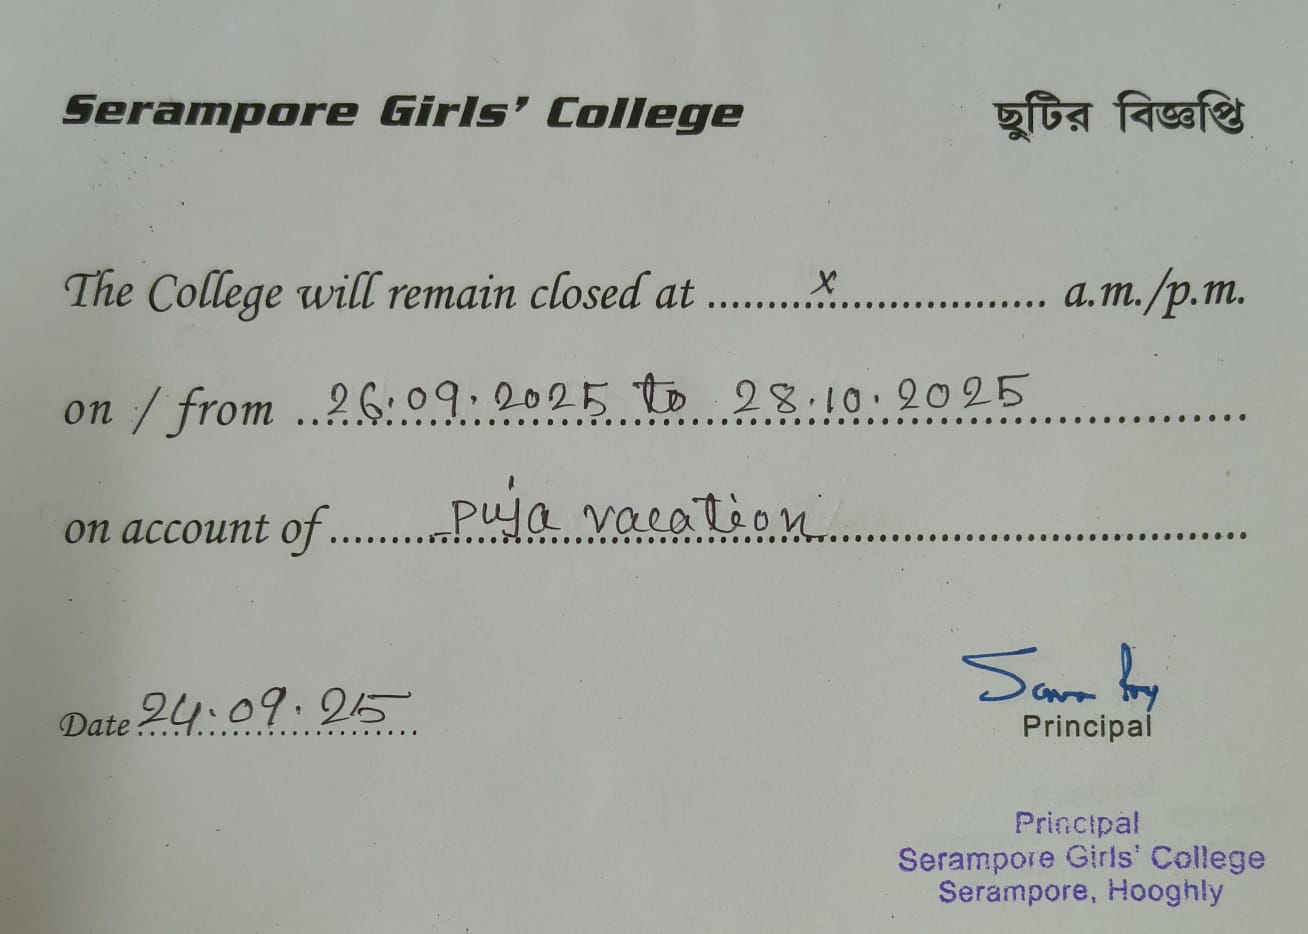 Serampore Girls' College ছুটির বিজ্ঞপ্তি
The College will remain closed at ..........x.................... a.m./p.m.
on / from ..26.09.2025 to 28.10.2025....................
on account of..........puja vacation........................................
Date 24.09.25
Principal
Principal
Serampore Girls' College
Serampore, Hooghly